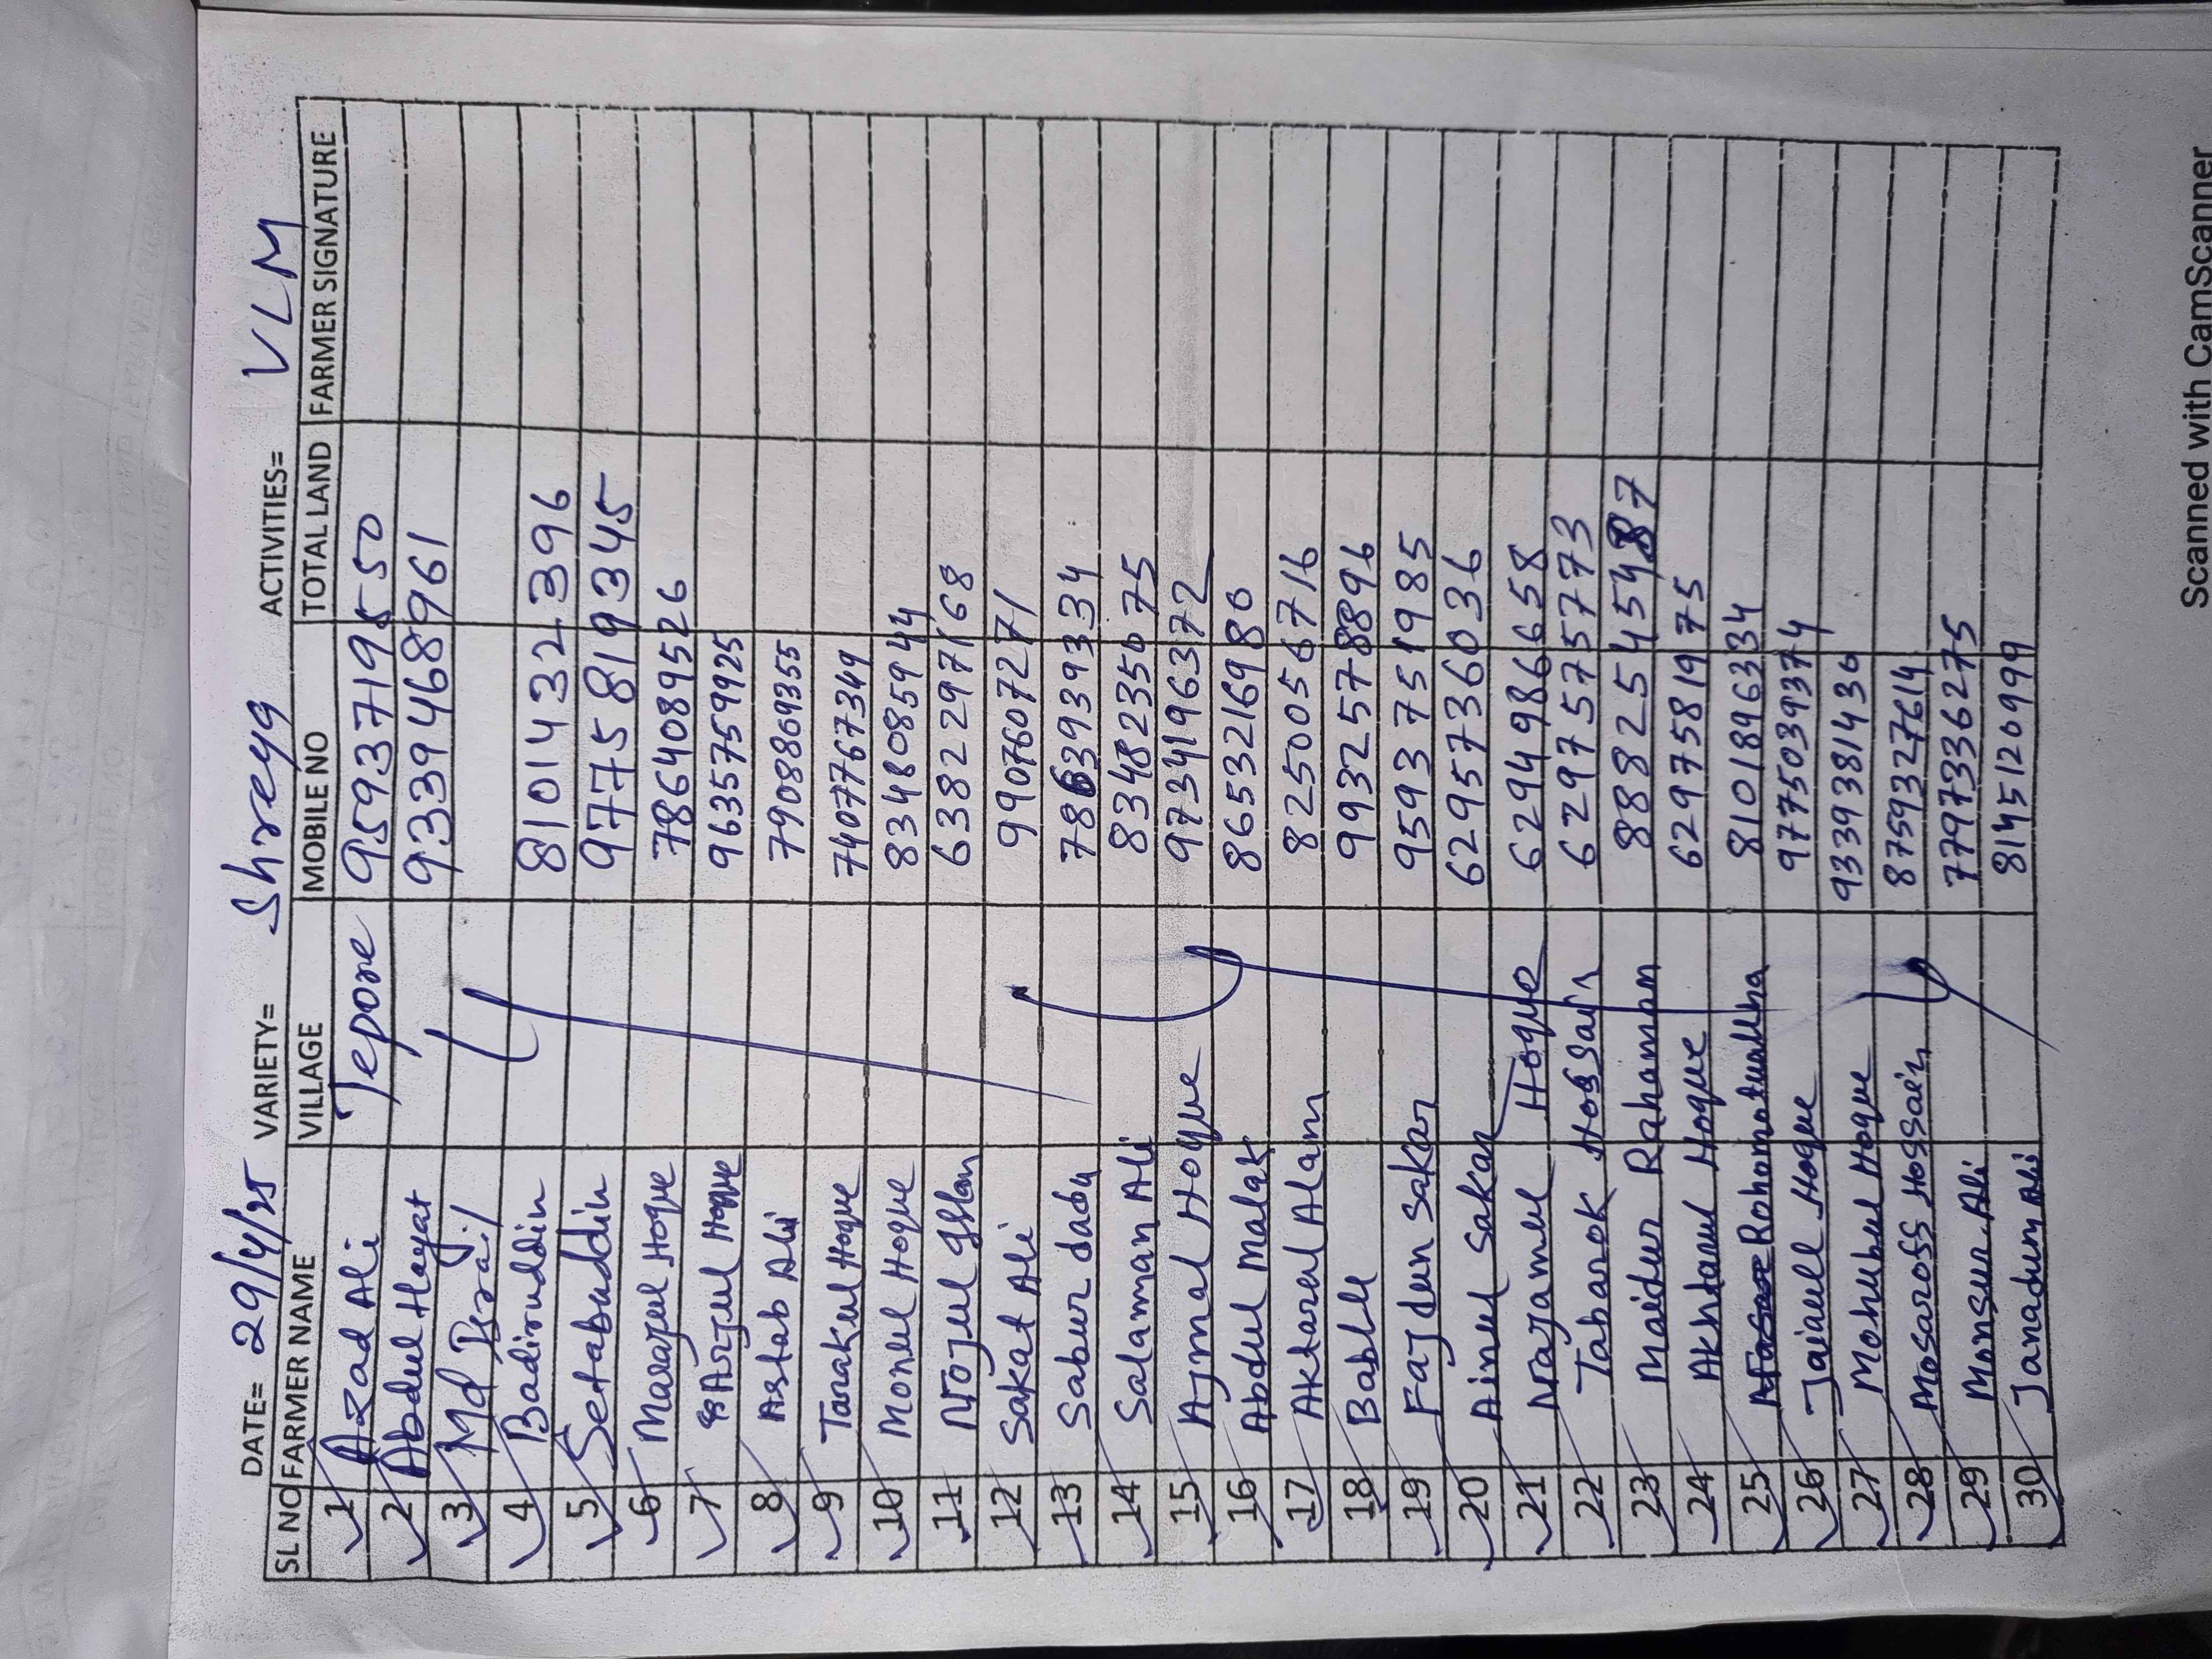 DATE= 29/4/25 VARIETY= Shreya ACTIVITIES= VLM
SL NO FARMER NAME VILLAGE MOBILE NO TOTAL LAND FARMER SIGNATURE
1 Azad Ali Tepore 9593719550
2 Abdul Hayat 9339468961
3 Md
4 Badiruddin 8101432396
5 Setabuddin 9775819345
6 Marajul Hoque 7864089526
7 Arzjul Hoque 9635759925
8 Astab Ali 7908869355
9 Tarakul Hoque 7407767349
10 Monul Hoque 8348085944
11 6382297168
12 Sakat Ali 9907607271
13 Sabur dadu 7863939334
14 Salamman Ali 8348235075
15 Ajmal Hoque 9734196372
16 Abdul Malak 8653216980
17 Aktarul Alam 8250056716
18 Bablu 9932578896
19 Fajdur Sakar 9593751985
20 Ainul Sakar 6295736036
21 Najamul Hoque 6294986658
22 Tabarok Hossain 6297575773
23 Maidur Rahaman 8882545487
24 Akhtarul Hoque 6297581975
25 Rohomotuallha 8101896334
26 Jaiaull Hoque 9775039374
27 Mohubul Hoque 9339381430
28 Mosaroff Hossain 8759327614
29 Monsur Ali 7797336275
30 Janadum Ali 8145120999
Scanned with CamScanner